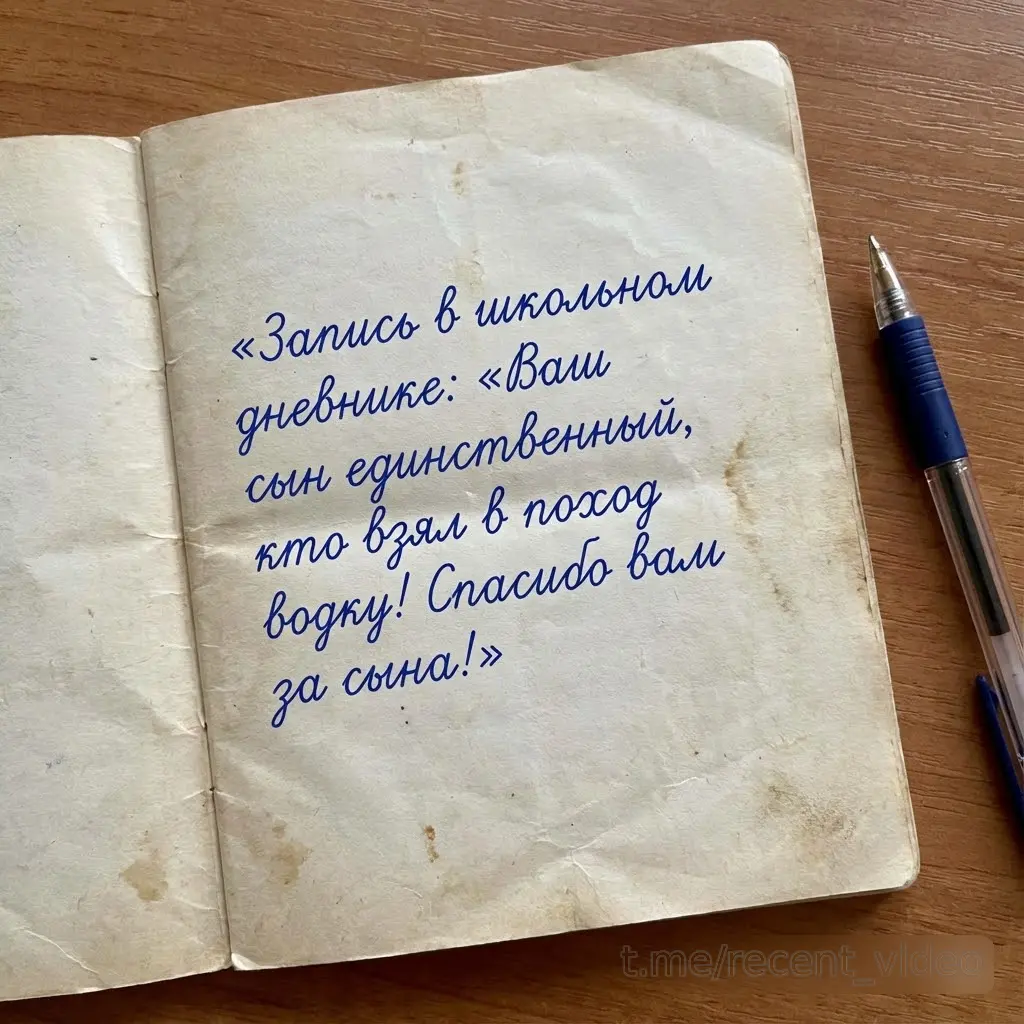 «Запись в школьном
дневнике: «Ваш
сын единственный,
кто взял в поход
водку! Спасибо вам
за сына!»
t.me/recent_video